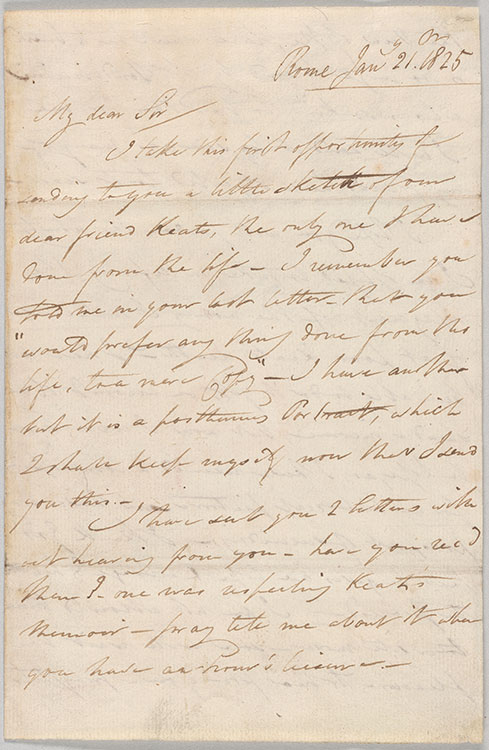 Rome Jany 21st 1825
My dear Sir
I take this first opportunity of
sending to you a little sketch of our
dear friend Keats, the only one I have
done from the life – I remember you
told me in your last letter – that you
"would prefer any thing done from the
life, to a mere Copy" – I have another
but it is a posthumus Portrait, which
I shall keep myself now that I send
you this. –
I have sent you 2 letters with
out hearing from you – have you rec'd
them? – one was respecting Keats's
Memoir – pray tell me about it when
you have an hour's leisure. –